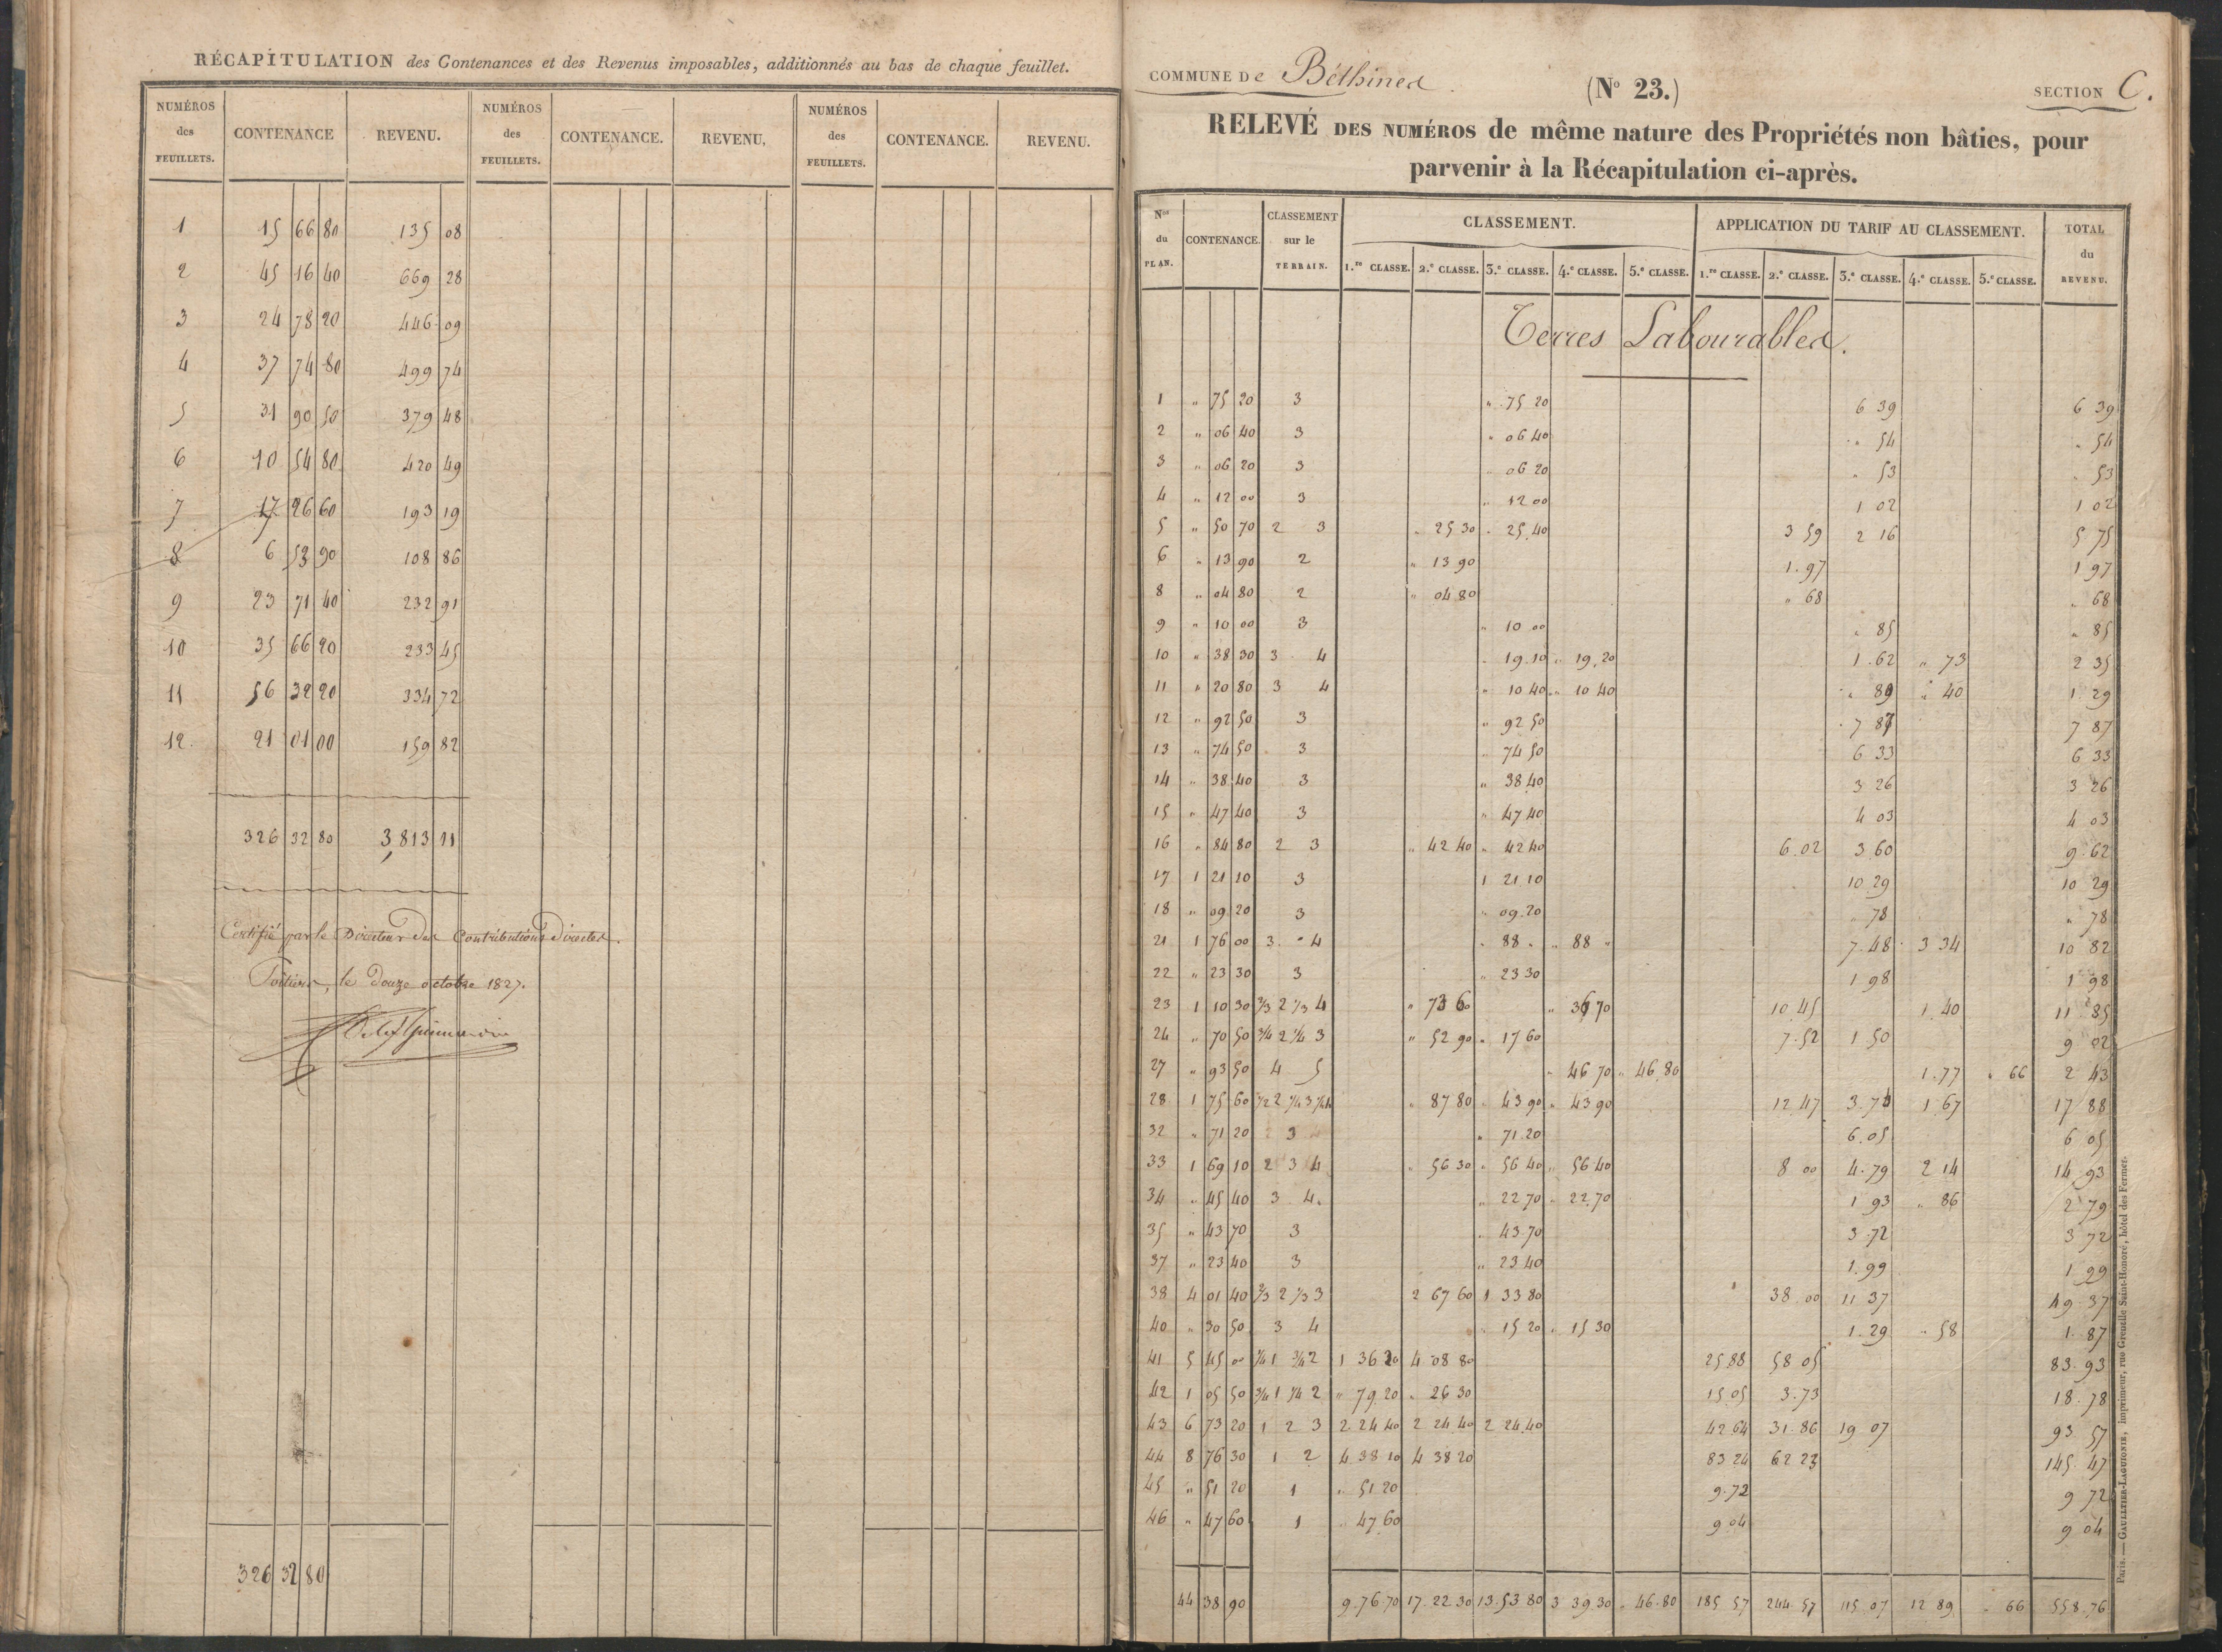 RÉCAPITULATION des Contenances et des Revenus imposables, additionnés au bas de chaque feuillet.
NUMÉROS des FEUILLETS. CONTENANCE REVENU. NUMÉROS des FEUILLETS. CONTENANCE. REVENU. NUMÉROS des FEUILLETS. CONTENANCE. REVENU.
1 15 66 80 135 08
2 45 16 40 669 28
3 24 78 20 446 09
4 37 74 80 499 74
5 31 90 50 379 48
6 10 54 80 420 49
7 17 26 60 193 19
8 6 53 90 108 86
9 23 71 40 232 91
10 35 66 20 233 45
11 56 32 20 334 72
12. 21 01 00 159 82
326 32 80 3,813 11
Certifié par le Directeur des Contributions directes.
Poitiers, le douze octobre 1827.
326 32 80
COMMUNE De Béthines. (No 23.) SECTION C.
RELEVÉ DES NUMÉROS de même nature des Propriétés non bâties, pour
parvenir à la Récapitulation ci-après.
Nos du PLAN. CONTENANCE. CLASSEMENT sur le TERRAIN. CLASSEMENT. APPLICATION DU TARIF AU CLASSEMENT. TOTAL du REVENU.
1.re CLASSE. 2.e CLASSE. 3.e CLASSE. 4.e CLASSE. 5.e CLASSE. 1.re CLASSE. 2.e CLASSE. 3.e CLASSE. 4.e CLASSE. 5.e CLASSE.
Terres Labourables.
1 " 75 20 3 " 75 20 6 39 6 39
2 " 06 40 3 " 06 40 " 54 " 54
3 " 06 20 3 " 06 20 " 53 " 53
4 " 12 00 3 " 12 00 1 02 1 02
5 " 50 70 2 3 " 25 30 " 25,40 3 59 2 16 5 75
6 " 13 90 2 " 13 90 1.97 1 97
8 " 04 80 2 " 04 80 " 68 " 68
9 " 10 00 3 " 10 00 " 85 " 85
10 " 38 30 3 4 " 19.10 " 19,20 1.62 " 73 2 35
11 " 20 80 3 4 " 10 40 " 10 40 " 89 " 40 1.29
12 " 92 50 3 " 92 50 7 87 7 87
13 " 74 50 3 " 74 50 6 33 6 33
14 " 38 40 3 " 38 40 3 26 3 26
15 " 47 40 3 " 47 40 4 03 4 03
16 " 84 80 2 3 " 42 40 " 42 40 6.02 3.60 9.62
17 1 21 10 3 1 21 10 10 29 10 29
18 " 09 20 3 " 09.20 " 78 " 78
21 1 76 00 3 4 " 88 " " 88 " 7.48 3 34 10 82
22 " 23 30 3 " 23 30 1 98 1 98
23 1 10 30 2/3 2 1/3 4 " 73 60 " 36 70 10.45 1.40 11 85
24 " 70 50 3/4 2 1/4 3 " 52 90 " 17 60 7.52 1 50 9 02
27 " 93 50 4 5 " 46 70 " 46.80 1.77 " 66 2 43
28 1 75 60 1/2 2 1/4 3 1/4 4 " 87 80 " 43 90 " 43 90 12.47 3.74 1 67 17 88
32 " 71 20 3 " 71.20 6.05 6 05
33 1 69 10 2 3 4 " 56 30 " 56 40 " 56 40 8 00 4.79 2 14 14,93
34 " 45 40 3 4 " 22 70 " 22.70 1 93 " 86 2 79
35 " 43 70 3 " 43 70 3.72 3 72
37 " 23 40 3 " 23 40 1.99 1 99
38 4 01 40 2/3 2 1/3 3 2 67 60 1 33 80 38.00 11 37 49 37
40 " 30 50 3 4 " 15 20 " 15 30 1.29 " 58 1.87
41 5 45 00 1/4 1 3/4 2 1 36 20 4 08 80 25.88 58 05 83.93
42 1 05 50 3/4 1 1/4 2 " 79.20 " 26 30 15.05 3.73 18.78
43 6 73 20 1 2 3 2.24 40 2 24 40 2 24.40 42 64 31.86 19 07 93 57
44 8 76 30 1 2 4 38 10 4 38 20 83 24 62 23 145 47
45 " 51 20 1 " 51.20 9.72 9 72
46 " 47 60 1 " 47.60 9 04 9 04
44 38 90 9.76.70 17.22.30 13.53 80 3 39 30 " 46.80 185 57 244.57 115 07 12 89 " 66 558.76
Paris. — GAULTIER-LAGUIONIE, imprimeur, rue Grenelle Saint-Honoré, hôtel des Fermes.